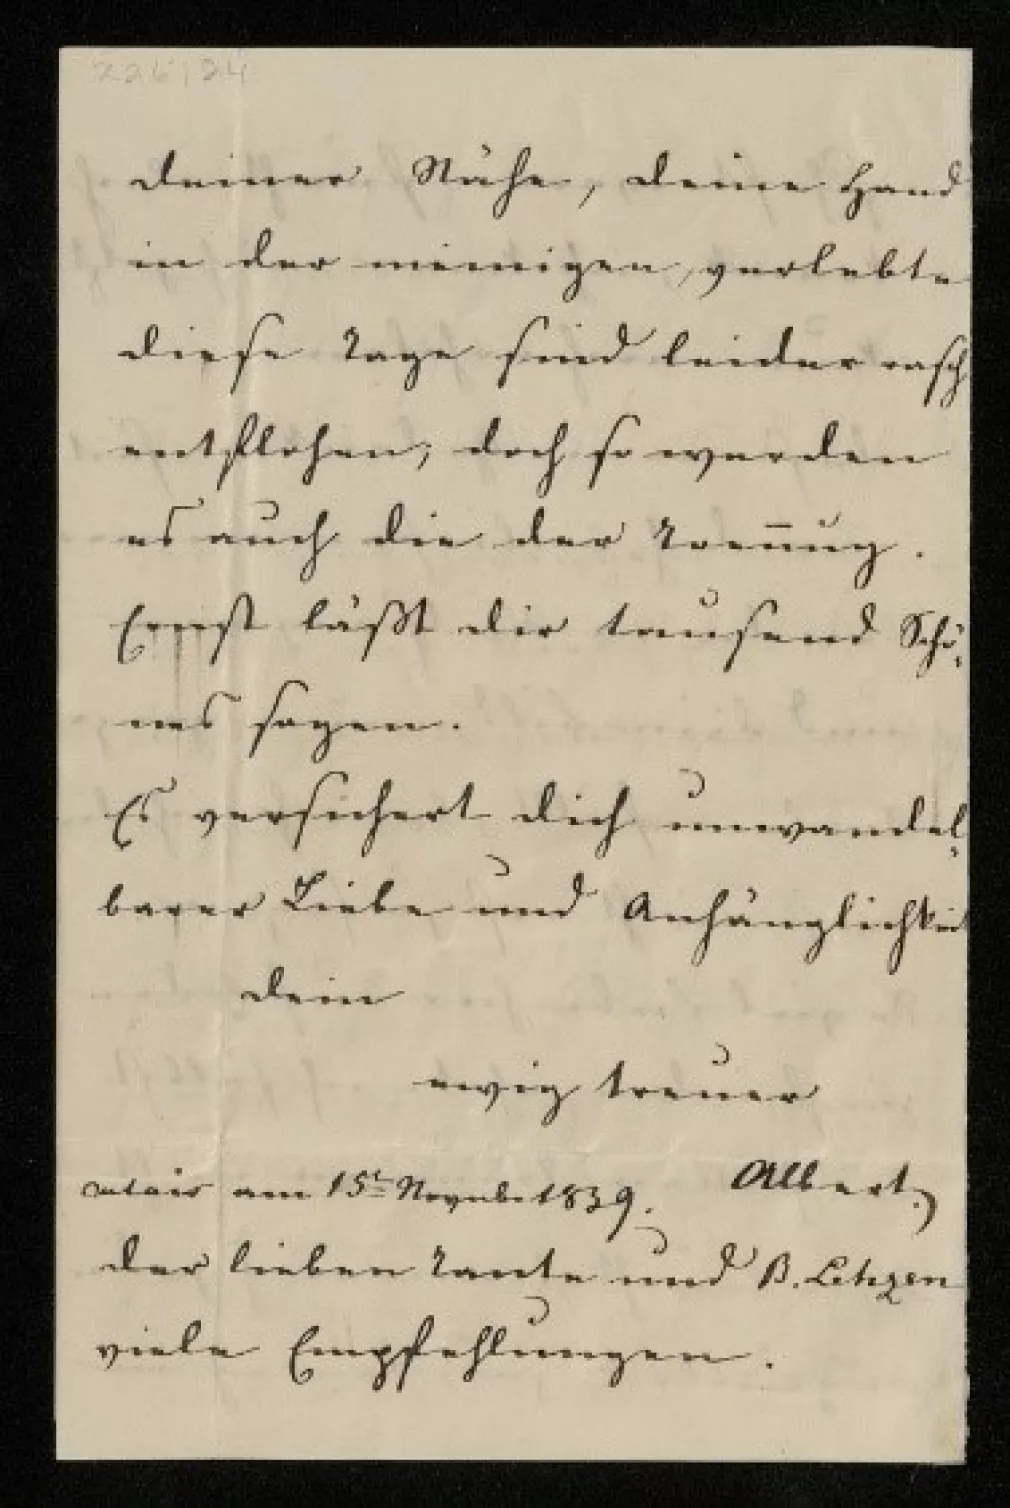 226/24
deiner Nähe, deine Hand
in der meinigen, verlebte
diese Tage sind leider rasch
entflohen; doch so werden
es auch die der Treñug.
Ernst läßt dir tausend Schö-
nes sagen.
Es versichert dich unwandel-
barer Liebe und Anhänglichkeit
dein
ewig treuer
Albert.
Calais am 15t Novmbe 1839.
der lieben Tante und B. Lehzen
viele Empfehlungen.